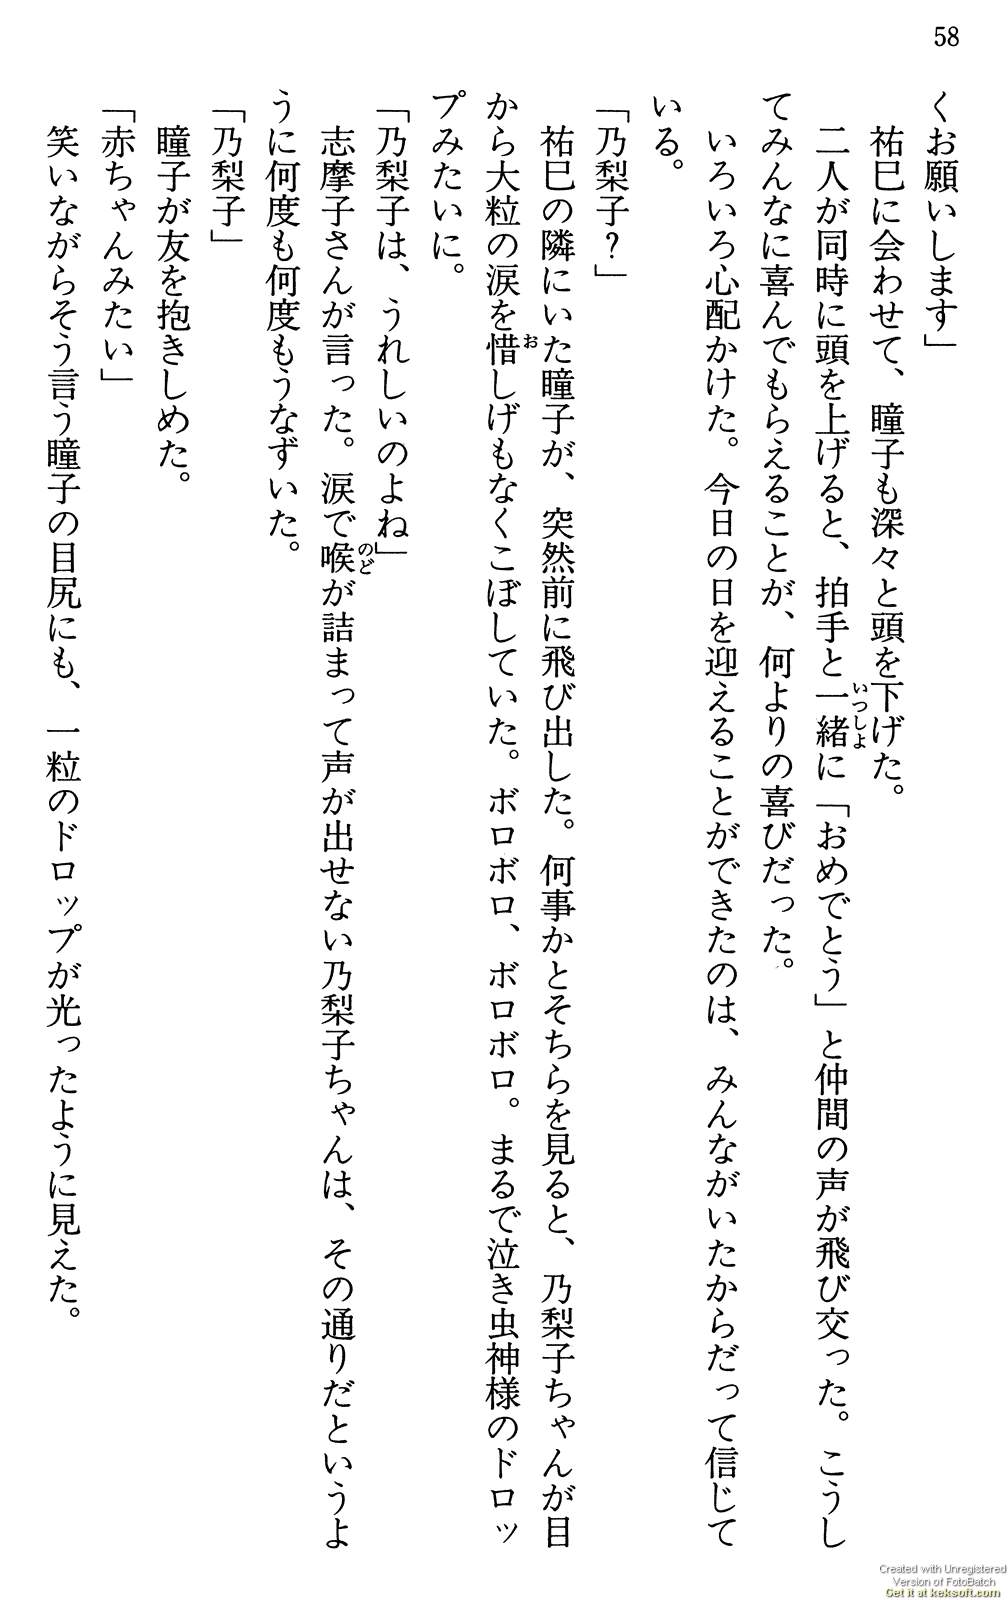 58
くお願いします」
祐巳に会わせて、瞳子も深々と頭を下げた。
二人が同時に頭を上げると、拍手と一緒に「おめでとう」と仲間の声が飛び交った。こうし
てみんなに喜んでもらえることが、何よりの喜びだった。
いろいろ心配かけた。今日の日を迎えることができたのは、みんながいたからだって信じて
いる。
「乃梨子？」
祐巳の隣にいた瞳子が、突然前に飛び出した。何事かとそちらを見ると、乃梨子ちゃんが目
から大粒の涙を惜しげもなくこぼしていた。ボロボロ、ボロボロ。まるで泣き虫神様のドロッ
プみたいに。
「乃梨子は、うれしいのよね」
志摩子さんが言った。涙で喉が詰まって声が出せない乃梨子ちゃんは、その通りだというよ
うに何度も何度もうなずいた。
「乃梨子」
瞳子が友を抱きしめた。
「赤ちゃんみたい」
笑いながらそう言う瞳子の目尻にも、一粒のドロップが光ったように見えた。
Created with Unregistered
Version of FotoBatch
Get it at keksoft.com